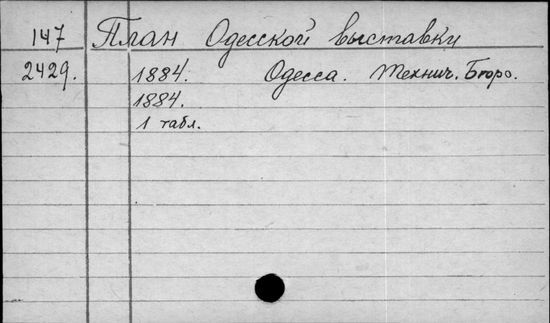 147 План Одесской выставки
2429. 1884. Одесса. Технич. Бюро.
1884.
1 табл.